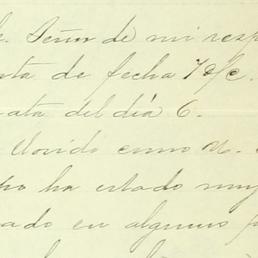 Señor de mi resp
ta de fecha 7 d/c.
ata del día 6.
llovido como N.
ha estado muy
ado en algunos p